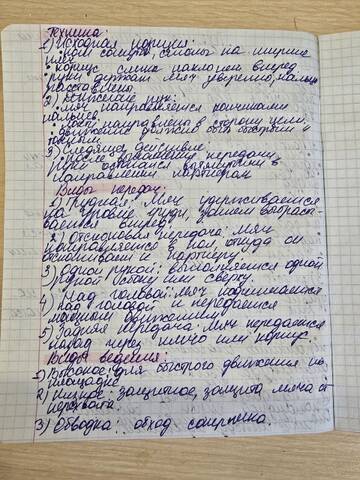 Техника:
1) Исходная позиция:
• ноги согнуты, стопы на ширине
плеч
• корпус слегка наклонен вперед
• руки держат мяч уверенно, пальцы
расставлены.
2) Движение рук:
• мяч направляется кончиками
пальцев
• локти направлены в сторону цели,
• движение должно быть быстрым и
точным.
3) Следящее действие:
• после выполнения передачи,
руки остаются вытянутыми в
направлении партнером
Виды передач:
1) Грудная: мяч удерживается
на уровне груди, затем выбрасы-
вается вперед.
2) Отскочная передача: мяч
направляется в пол, откуда он
отскакивает к партнеру
3) Одной рукой: выполняется одной
рукой сбоку или сверху.
4) Над головой: мяч поднимается
над головой и передается
мощным движением.
5) Задняя передача: мяч передается
назад через плечо или корпус.
Виды ведения:
1) Высокое: для быстрого движения по
площадке
2) Низкое: защитное, защита мяча от
перехвата.
3) Обводка: обход соперника.